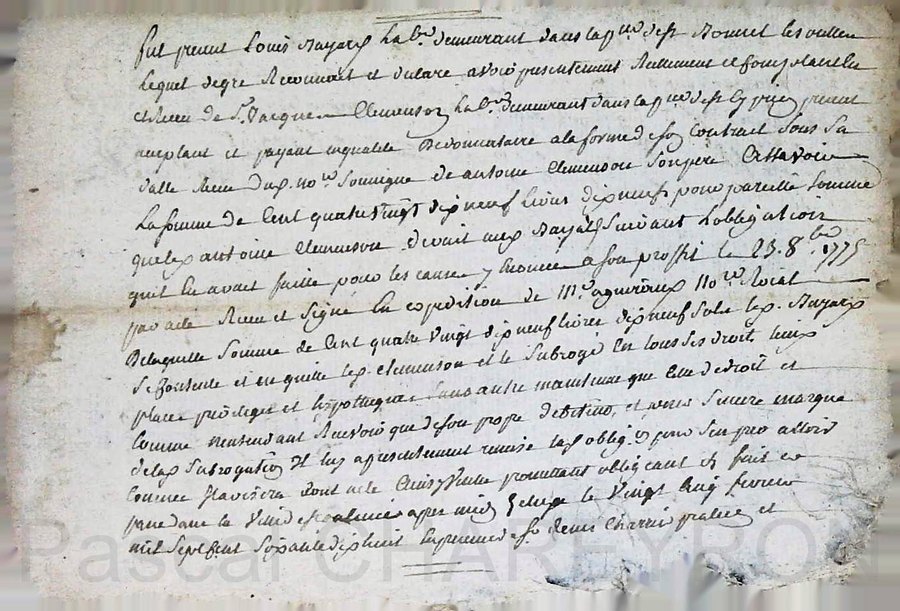 fut present Louis Bayard lab.r demeurant dans la p.sse de St Bonnet les oulles
Lequel de gre Reconnoit et declare avoir presentement Reellement et
et Receu de S.r Jacques Clemenson lab.r demeurant dans la p.sse de St present
acceptant et payant en qualité Donnataire a la forme de son Contrat sous sa
datte Receu no.re de antoine Clemenson Son pere Assavoir
La somme de Cent quatre vingt dix neuf Livres dix neuf pour pareille somme
que led. antoine Clemenson devait aud. Bayard Suivant Lobligation
quil En avait faitte pour les causes y Enoncée a son proffit le 23. 8.bre 1775
par acte Receu et Signé En expedition de M.e no.re Roial
De laquelle Somme de Cent quatre Vingt dix neuf livres dix neuf sols led. Bayard
Se Contente et en quitte led. Clemenson et le Subroge En tous ses droit lieux
place privileges et hypotheques sans autre maintenue que Celle de droit et
Comme nentendant Recevoir que de son propre debiteur, et
de lad. Subrogation Il luy a presentement remise lad. oblig.on pour sen
Comme Il avisera dont acte promettant obligeant &. fait et
passé dans la Ville de apres midy le Vingt Cinq fevrier
mil Sept Cent Soixante dix huit En presence de S.r Remis Charrin praticien et
Pascal CHAREYRON